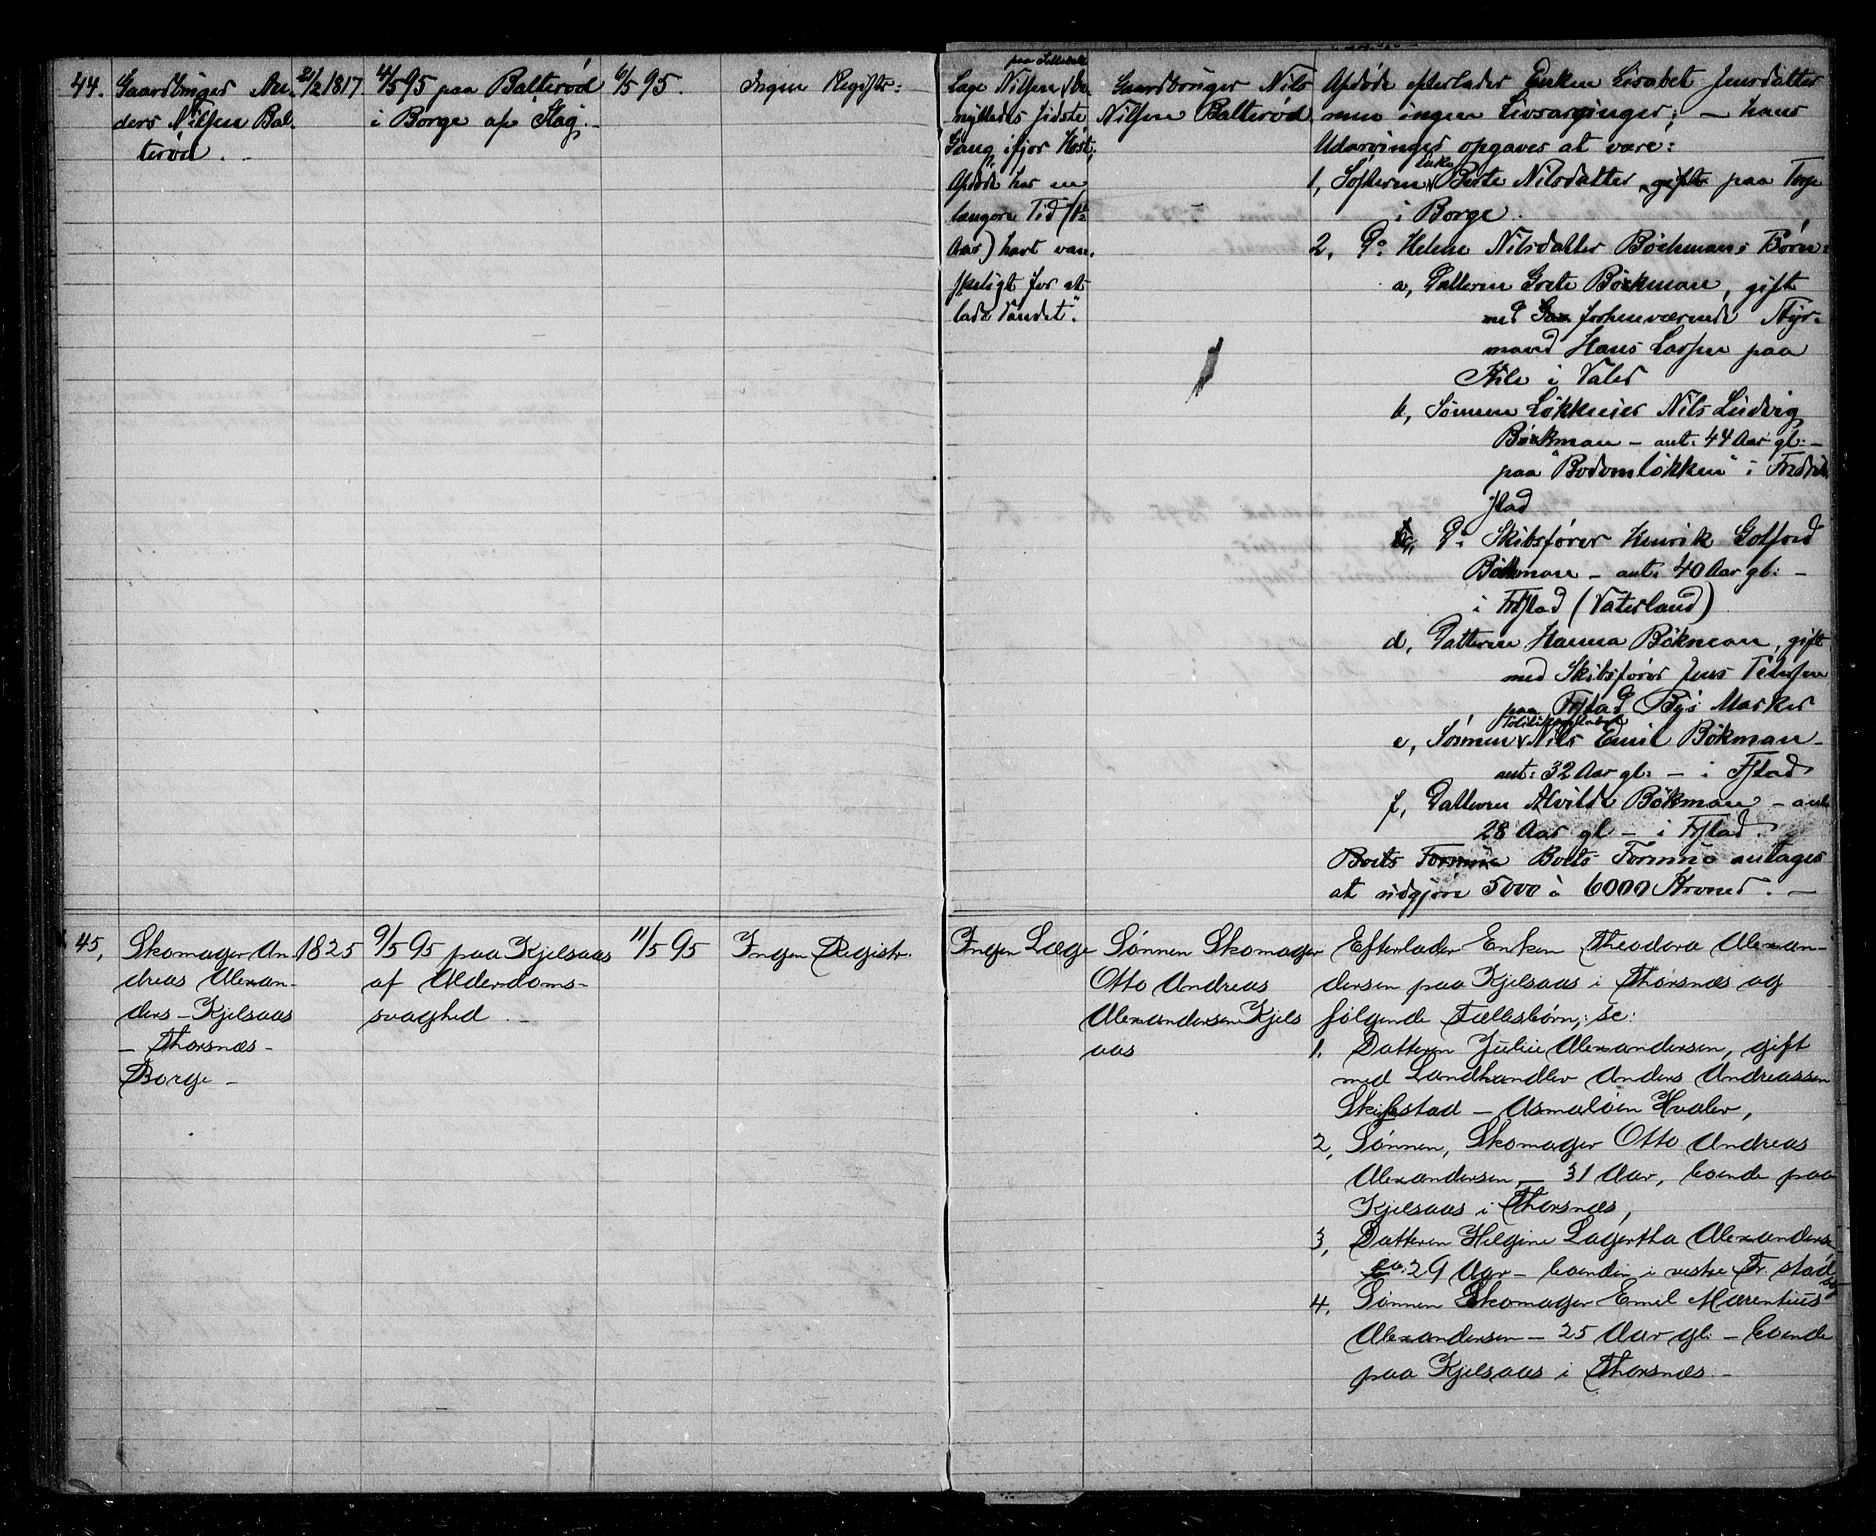 44.
Gaardbruger An-
ders Nilsen Bal-
terød. -
21/2 1817
4/5 95 paa Balterød
i Borge af Slag. -
6/5 95.
Ingen Registr:
paa Lillebæk
Læge Nilsen be-
nyttedes sidste
Gang i fjor Høst;
Afdøde har en
længere Tid
Aar) havt van-
skeligt for at
lade Vandet".
Gaardbruger Nils
Nilsen Balterød
Afdøde efterlader Enken Lisabet Jensdatter
men ingen Livsarvinger; - hans
Udarvinger opgaves at være:
1, Søsteren Enke Berte Nilsdatter, gift paa Torp
i Borge.
2, Do Helene Nilsdatter Bøckmans Børn:
a, Datteren Grete Bøckman, gift
med forhenværende Styr-
mand Hans Larsen paa
i Valer
b, Sønnen Løkkeeier Nils Ludvig
Bøckman - ant: 44 Aar gl: -
paa "Bodomløkken" i Fredrik-
stad
Do Skibsfører Henrik Gotfred
Bøkman - ant: 40 Aar gl: -
i Frstad (Vaterland)
d, Datteren Hanna Bøkman, gift
med Skibsfører Jens Petersen
paa Frstad Bys Marker
e, Sønnen Nils Emil Bøkman -
ant: 32 Aar gl: - i Fstad
f, Datteren Alvilde Bøkman - ant
28 Aar gl - i Frstad.
Boets Formue Boets Formue antages
at udgjøre 5000 à 6000 Kroner. -
45,
Skomager An-
dreas Alexan-
ders - Kjelsaas
- Thorsnæs -
Borge -
1825
9/5 95 paa Kjelsaas
af Alderdoms-
svaghed. -
11/5 95
Ingen Registr.
Ingen Læge
Sønnen Skomager
Otto Andreas
Alexandersen Kjels
aas
Efterlader Enken Theodora Alexan-
dersen paa Kjelsaas i Thorsnæs og
følgende Fællesbørn; se:
1. Datteren Julie Alexandersen, gift
med Landhandler Anders Andreassen
Skipstad - Asmaløen Hvaler,
2, Sønnen, Skomager Otto Andreas
Alexandersen, - 31 Aar, boende paa
Kjelsaas i Thorsnæs,
3, Datteren Helgine Lagertha Alexanderse
ca. 29 Aar - boende i vestre Fr. stad
4, Sønnen Skomager Emil Marentius
Alexandersen - 25 Aar gl. - boende
paa Kjelsaas i Thorsnæs. -